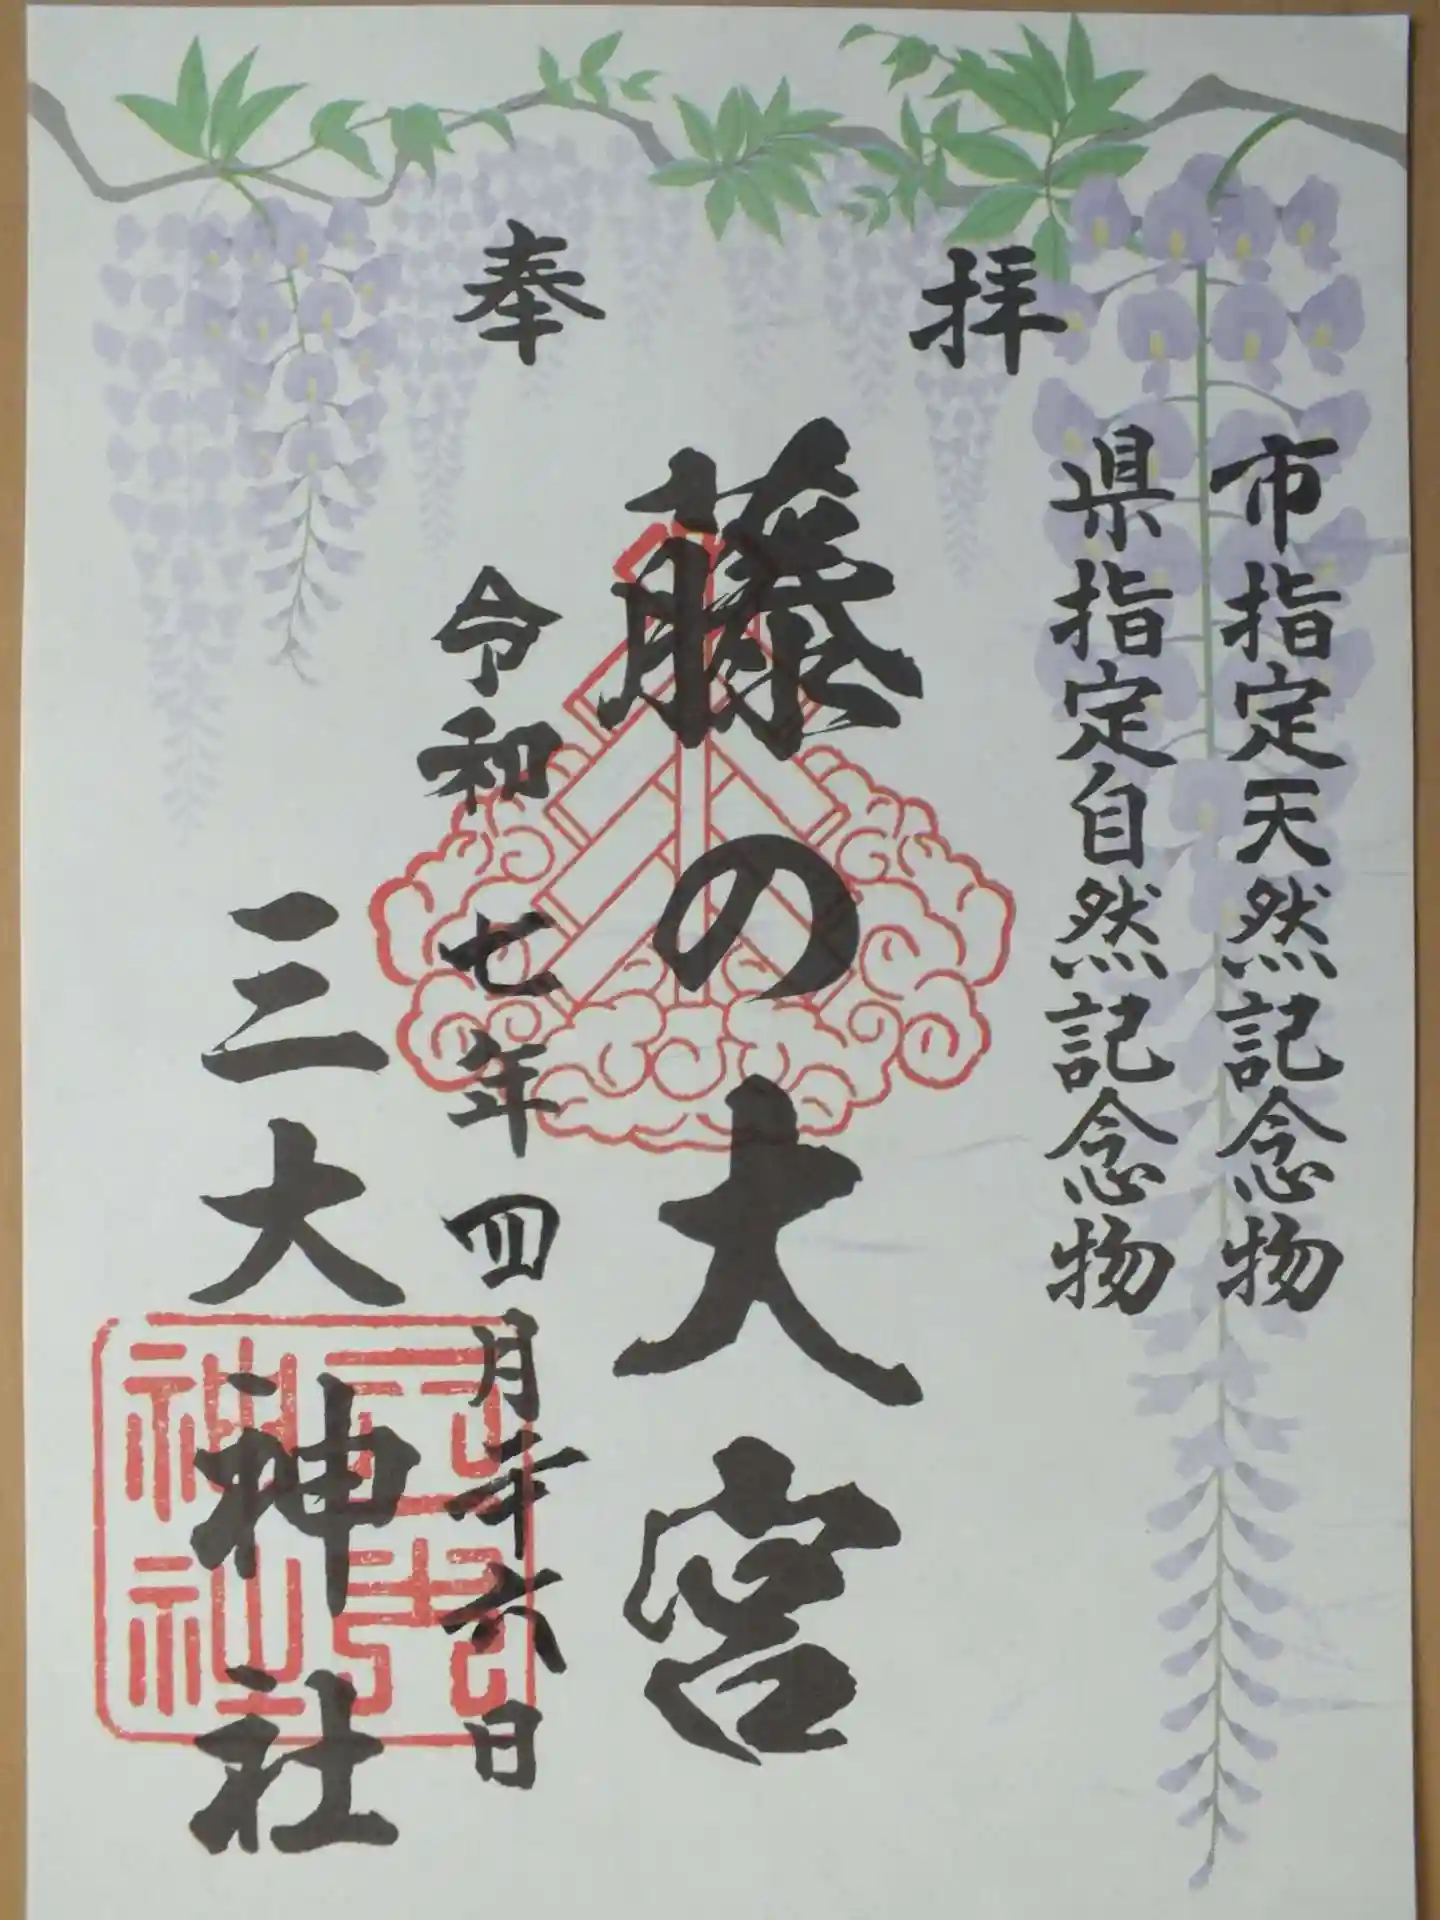 奉拝
市指定天然記念物
県指定自然記念物
藤の大宮
令和七年四月二十六日
三大神社